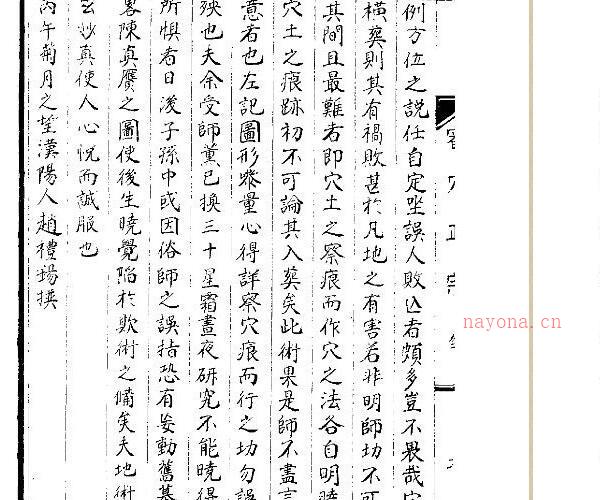 例方位之説任自定坐誤人敗亡者頗多豈不畏哉穴
橫葬則其有禍敗甚於凡地之有害若非明師功不可
其間且最難者即穴土之察痕而作穴之法各自明
穴土之痕跡初不可論其入葬矣此術果是師不盡言
意者也左記圖形參量心得詳察穴痕而行之切勿誤
殃也夫余受師薰已換三十星霜晝夜研究不能曉得
所惧者日後子孫中或因俗師之誤指恐有妄動舊墓
畧陳真贗之圖使後生曉覺陷於欺術之備矣夫地術
玄妙真使人心悦而誠服也
丙午菊月之望漢陽人趙禮瑒撰
穴正宗
nayona.cn